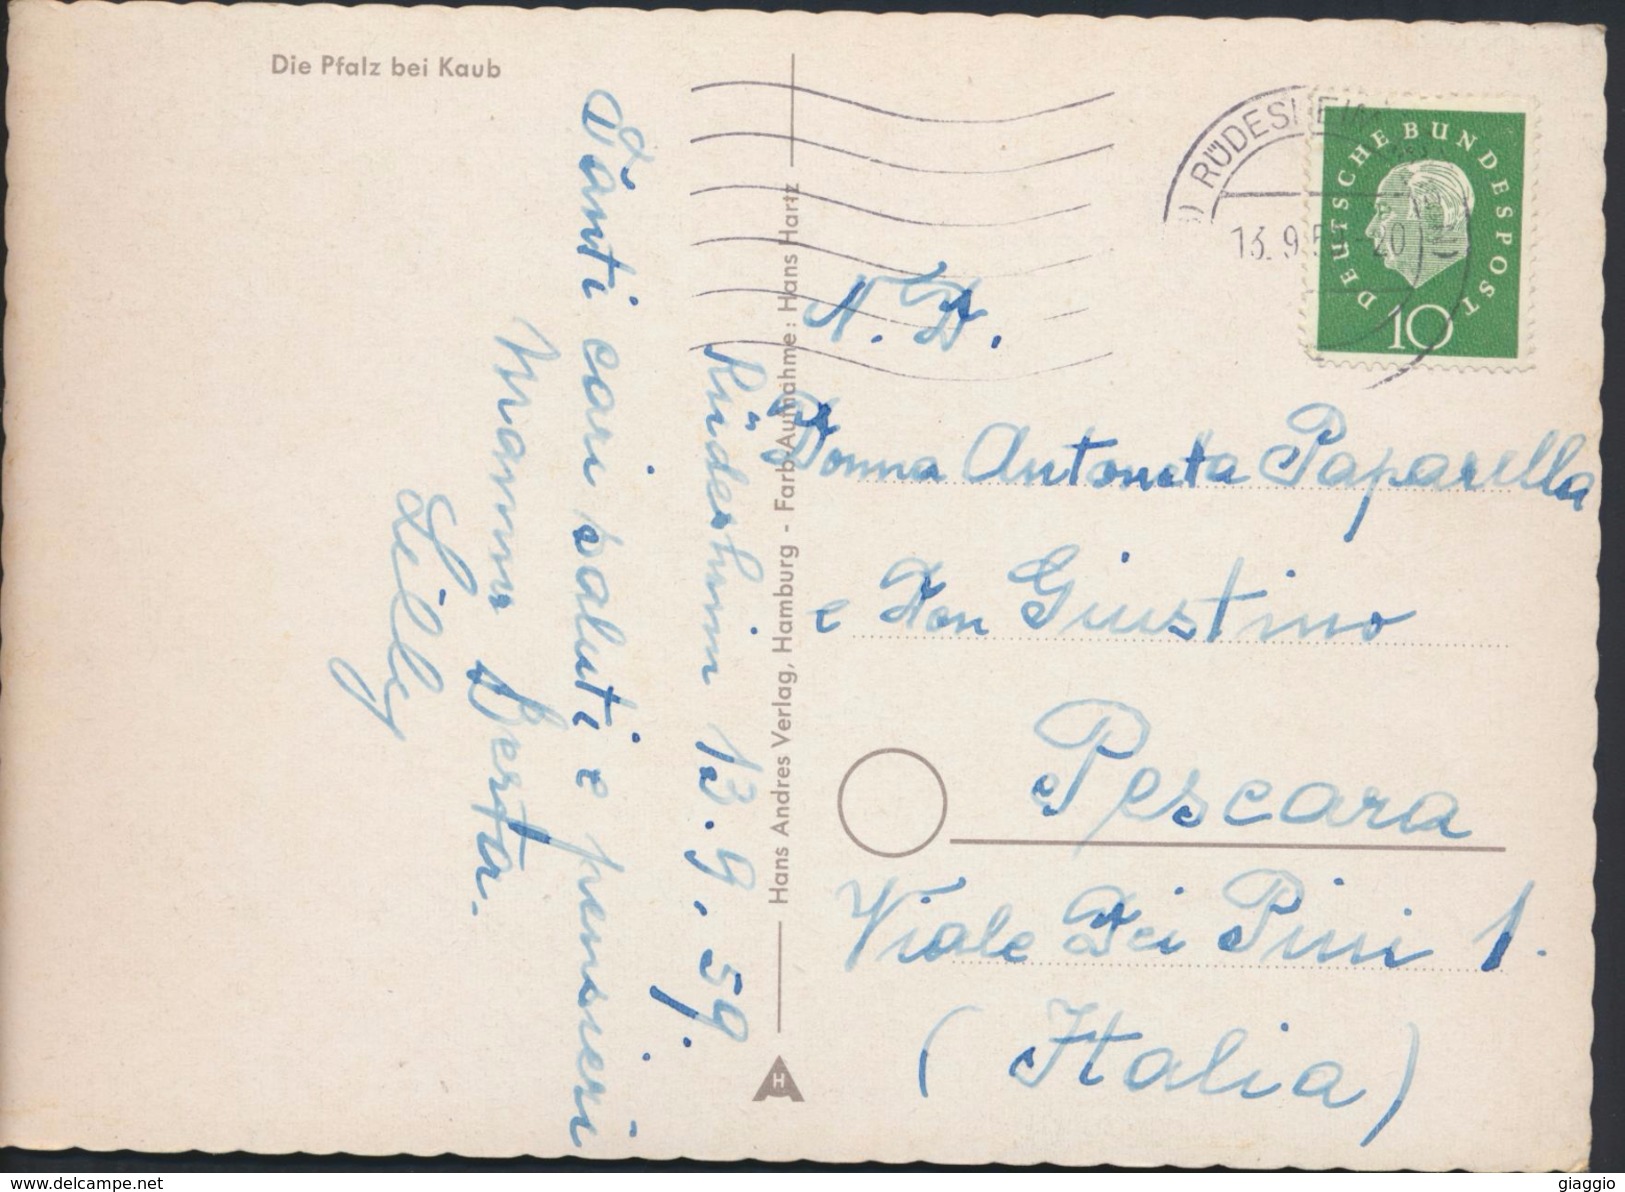 Die Pfalz bei Kaub
Rüdesheim 13.9.59.
Tanti cari saluti e pensieri
Mamma Berta.
Lilly
Hans Andres Verlag, Hamburg - Farb-Aufnahme: Hans Hartz
H
RÜDESHEIM
13.9.5 -20
DEUTSCHE BUNDESPOST
10
N.D.
Donna Antonieta Paparella
e Don Giustino
Pescara
Viale Dei Pini 1.
(Italia)
www.delcampe.net
giaggio